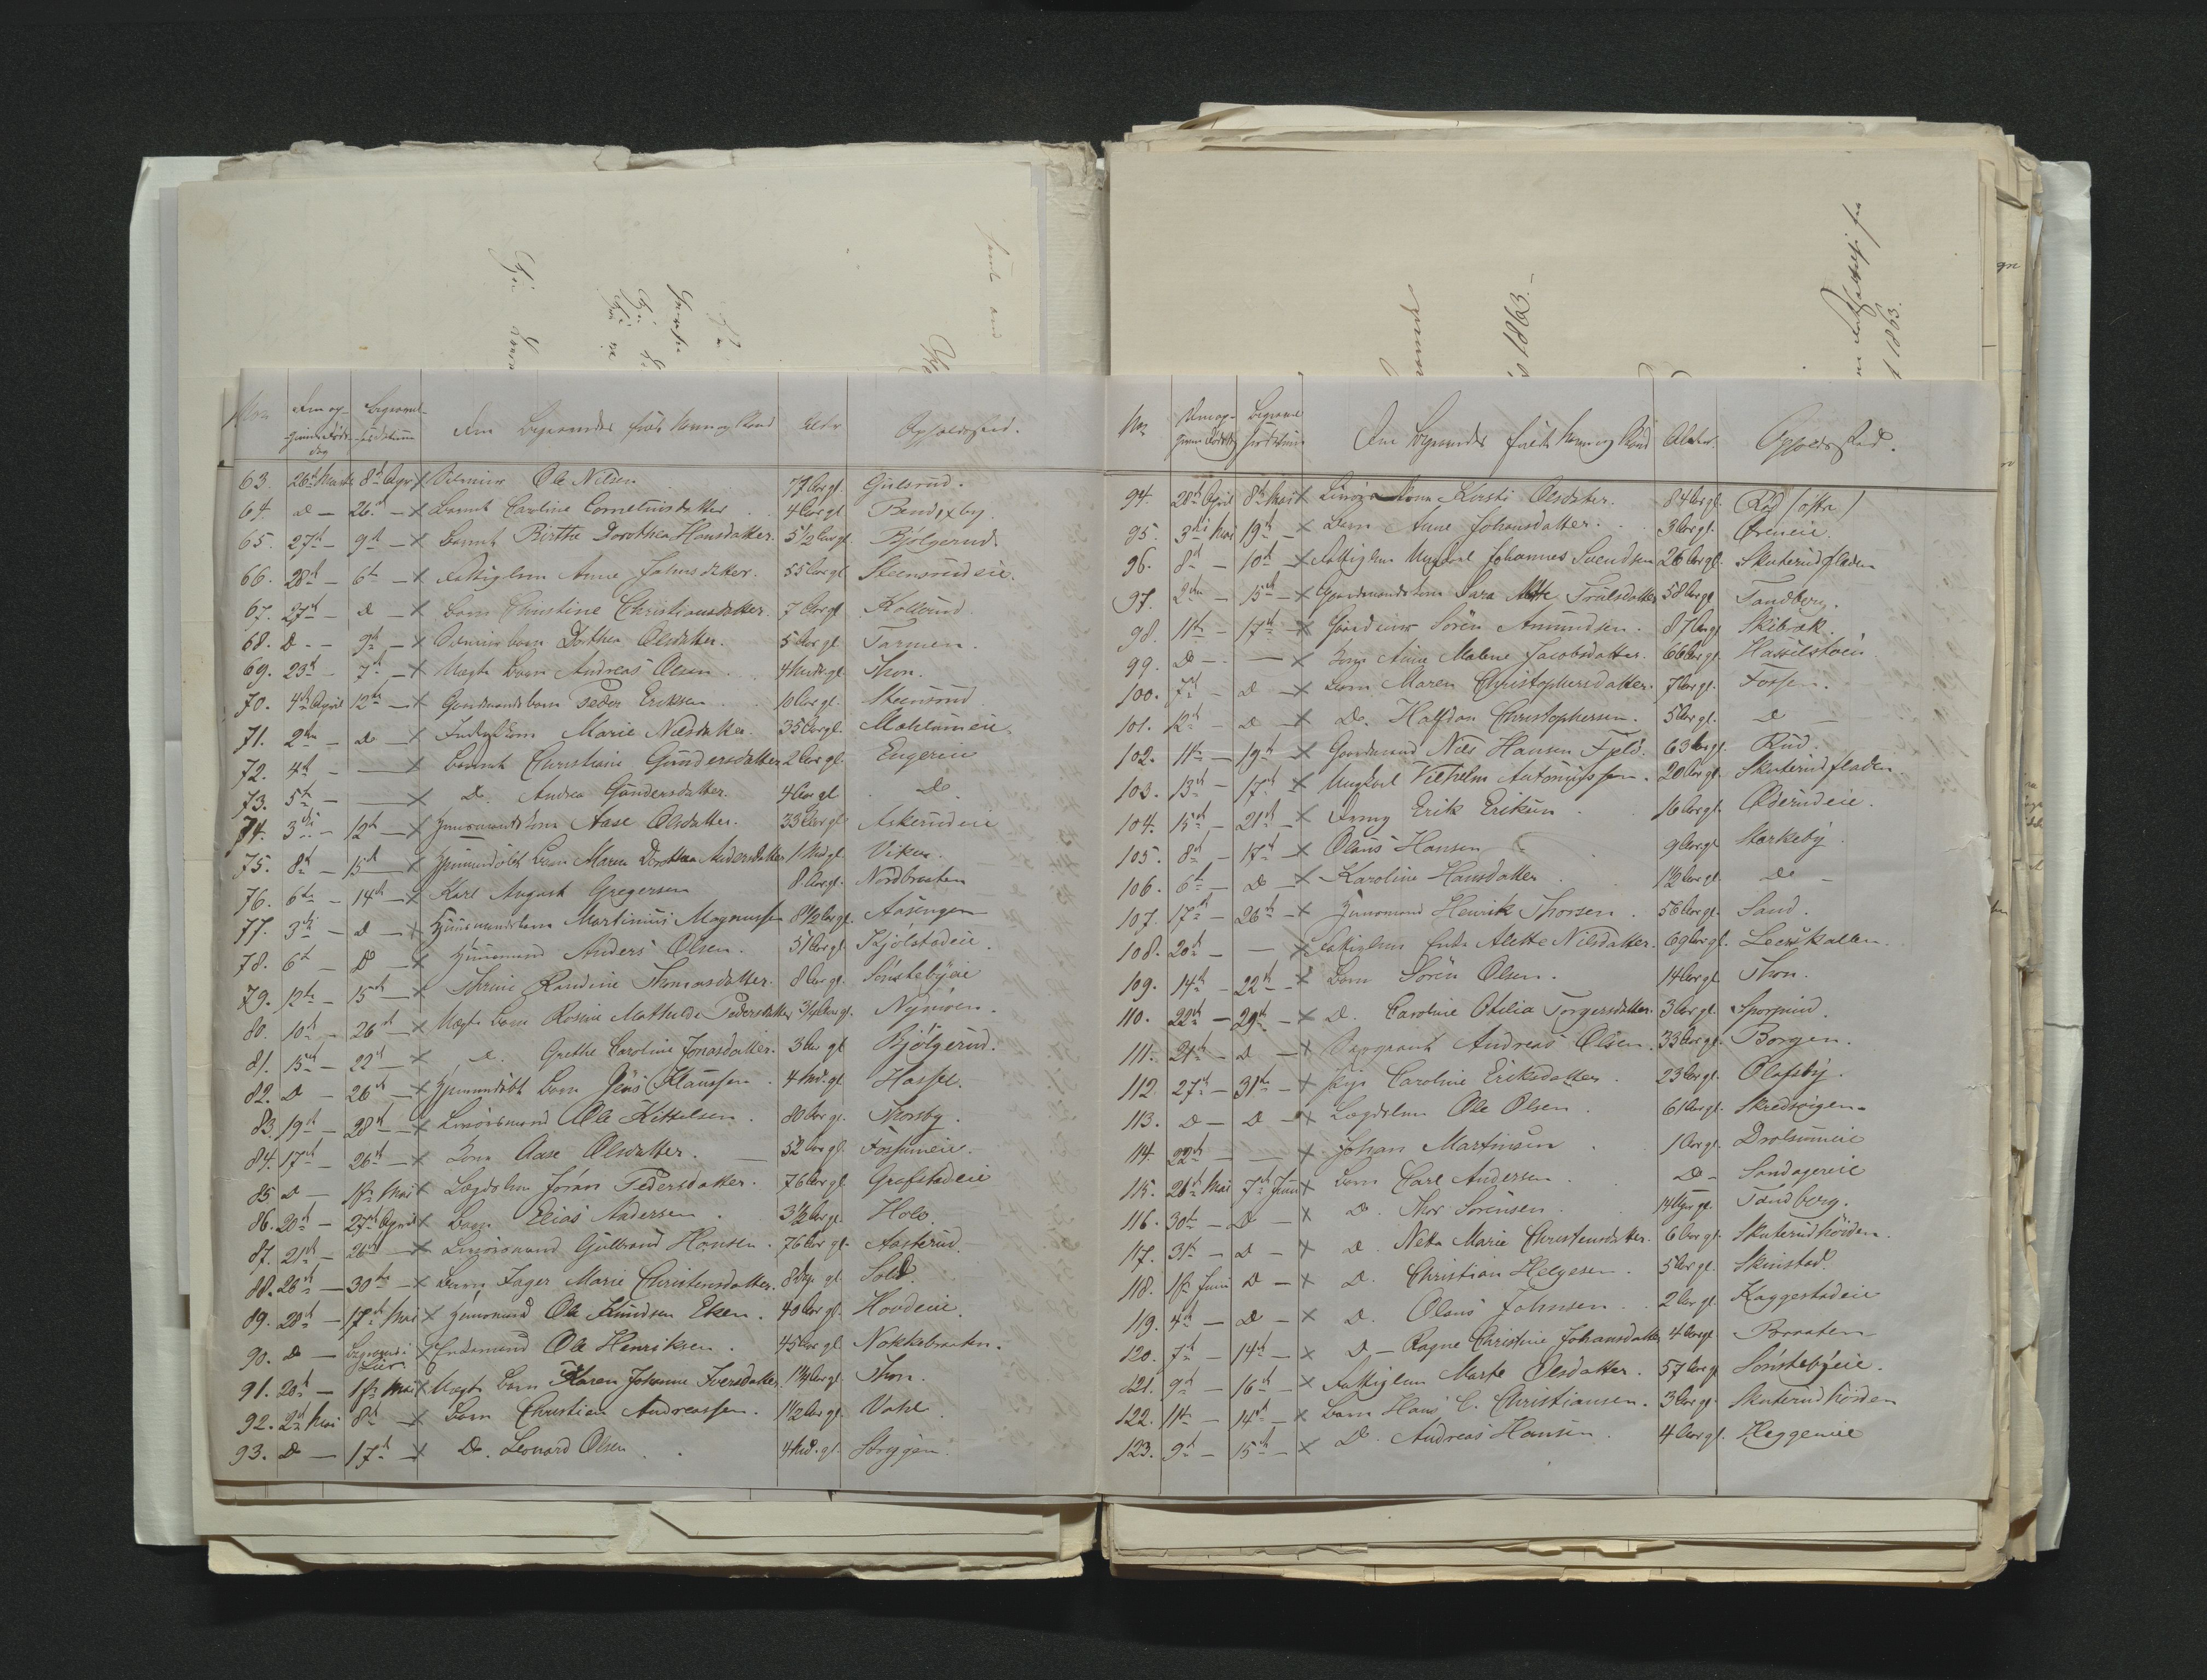 No Den op- Begravel-
givne Døds- sesdatum
dag
Den Begravedes fulde Navn og Stand Alder Opholdssted.
63. 26de Marts 8de Apr X Ole Nilsen 77 Aar gl. Gulsrud.
64. Do — 26de — X Barnet Caroline Corneliusdatter 4 Aar gl Bendixby.
65. 27de — 9de — X Barnet Birthe Dorothea Hansdatter. 5 1/2 Aar gl. Bjølgerud.
66. 28de — 6te — X Fattiglem Anne Johnsdatter. 55 Aar gl Steensrudeie.
67. 27de — Do — X Barn Christine Christiansdatter. 7 Aar gl Kollerud.
68. Do — 9de — X Barn Dorthea Olsdatter. 5 Aar gl Tarmen.
69. 23de — 7de — X Uægte Barn Andreas Olsen 4 Mdr gl Thon.
70. 4de April 12te — X Gaardmands barn Peder Eriksen 10 Aar gl. Steensrud
71. 2den — Do — X Marie Nilsdatter. 35 Aar gl. Mohlumeie.
72. 4de — — X Barnet Christiane Gundersdatter 2 Aar gl. Engereie
73. 5te — — X Do. Andrea Gundersdatter. 4 Aar gl Do.
74. 3die — 12te — X Huusmandskone Aase Olsdatter. 33 Aar gl Askerudeie
75. 8de — 15de X Barn Maren Dorthea Andersdatter 1 Md gl Viker.
76. 6te — 14de — X Karl August Gregersen 8 Aar gl. Nordbraaten
77. 3die — Do — X Huusmandsbarn Martinius Magnussen 8 1/2 Aar gl. Aasengen
78. 6te — Do — X Huusmand Anders Olsen. 51 Aar gl Kjølstadeie.
79. 12te — 15de — X Thrine Randine Thomasdatter. 8 Aar gl. Sønstebyeie
80. 10de — 26de — X Uægte Barn Rosine Mathilde Pedersdatter 3/4 Aar gl. Nymoen.
81. 15de — 22de — X Do. Grethe Caroline Jonasdatter. 3 Aar gl Bjølgerud.
82. Do — 26de — X Barn Jens Klaussen. 4 Mdr. gl. Hassel.
83. 19de — 28de — X Livørsmand Ole Kittelsen. 80 Aar gl. Thorsby.
84. 17de — 26de — X Kone Aase Olsdatter. 52 Aar gl. Fossumeie.
85 Do — 1ste Mai X Lægdslem Jøran Pedersdatter. 76 Aar gl. Grafstadeie
86. 20de — 27de April X Barn Elias Andersen. 3 1/2 Aar gl. Holo.
87. 21de — 26de — X Livørsmand Gulbrand Hansen. 76 Aar gl. Aasterud.
88. 26de — 30te — X Barn Inger Marie Christensdatter. 8 Dage gl. Sole.
89. 28de — 17de Mai X Huusmand Ole Knudsen Eken. 40 Aar gl. Hovdeie.
90. Do — Begravet i Lier X Ole Henriksen. 45 Aar gl. Nokkebraaten.
91. 20de — 1ste Mai X Uægte Barn Karen Johanne Iversdatter. 1 3/4 Aar gl. Thon.
92. 2den Mai 8de — X Barn Christian Andreassen. 1 1/2 Aar gl. Vake.
93. Do — 17de — X Do. Leonard Olsen. 4 Md. gl. Stryggen.
No Den op- Begravel
givne Dødsdag sesdatum
Den Begravedes fulde Navn og Stand Alder. Opholdssted.
94. 28de April 8de Mai X Kirsti Olsdatter. 84 Aar gl. Rød (østre)
95. 3die Mai 19de — X Barn Anne Johansdatter. 3 Aar gl. Øreneie.
96. 8de — 10de — X Fattiglem Ungkarl Johannes Svendsen 26 Aar gl. Skuterudfladen
97. 2den — 15de — X Gaardmandskone Sara Mette Troalsdatter 58 Aar gl Tandberg.
98. 11te — 17de — X Søren Amundsen. 87 Aar gl Skibrek.
99. Do — — X Kone Anne Malene Jacobsdatter. 66 Aar gl. Hasselstøen.
100. 7de — Do — X Barn Maren Christophersdatter. 7 Aar gl. Fossen.
101. 12te — Do — X Do. Halfdan Christophersen. 5 Aar gl. Do —
102. 11te — 19de — X Gaardmand Nils Hansen Fjeld. 63 Aar gl. Rud.
103. 13de — 17de — X Ungkarl Vilhelm Antoniussen. 20 Aar gl. Skuterudfladen.
104. 15de — 21de — X Dreng Erik Eriksen. 16 Aar gl. Øderudeie.
105. 8de — 17de — X Olaus Hansen 9 Aar gl Starkeby.
106. 6te — Do — X Karoline Hansdatter 1 1/2 Aar gl. Do —
107. 17de — 26de — X Huusmand Henrik Thorsen. 56 Aar gl. Sand.
108. 20de — — X Fattiglem Enke Alette Nilsdatter. 69 Aar gl. Leerskallen.
109. 14de — 22de — X Barn Søren Olsen. 14 Aar gl Thon.
110. 22de — 29de — X Do. Caroline Otilia Torgersdatter. 3 Aar gl. Sporpind.
111. 21de — Do — X Andreas Olsen. 33 Aar gl. Borgen.
112. 27de — 31te — X Pige Caroline Eriksdatter. 23 Aar gl. Olafsby.
113. Do — Do — X Lægdslem Ole Olsen. 61 Aar gl. Skredsvigen.
114. 22de — — X Johan Martinsen. 1 Aar gl. Drolsumeie
115. 26de Mai 7de Juni X Barn Carl Andersen. Do — Sandagereie
116. 30te — Do — X Do. Thor Sørensen. 14 Uger gl. Tandberg.
117. 31te — Do — X Do. Neka Marie Christensdatter. 6 Aar gl. Skuterudhøiden.
118. 1ste Juni Do — X Do. Christian Helgesen. 5 Aar gl. Skinstad.
119. 4de — Do — X Do. Olaus Johnsen. 2 Aar gl. Kaggestadeie
120. 7de — 14de — X Do — Ragne Christine Johansdatter 4 Aar gl. Braaten
121. 9de — 16de — X Fattiglem Marte Olsdatter. 57 Aar gl Sønstebyeie.
122. 11te — 14de — X Barn Hans C. Christiansen. 3 Aar gl. Skuterudhøiden
123. 9de — 15de — X Do. Andreas Hansen. 4 Aar gl. Heggeneie
1863.
1863.